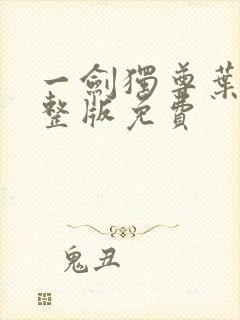 一劍獨尊葉
整版免費
鬼丑